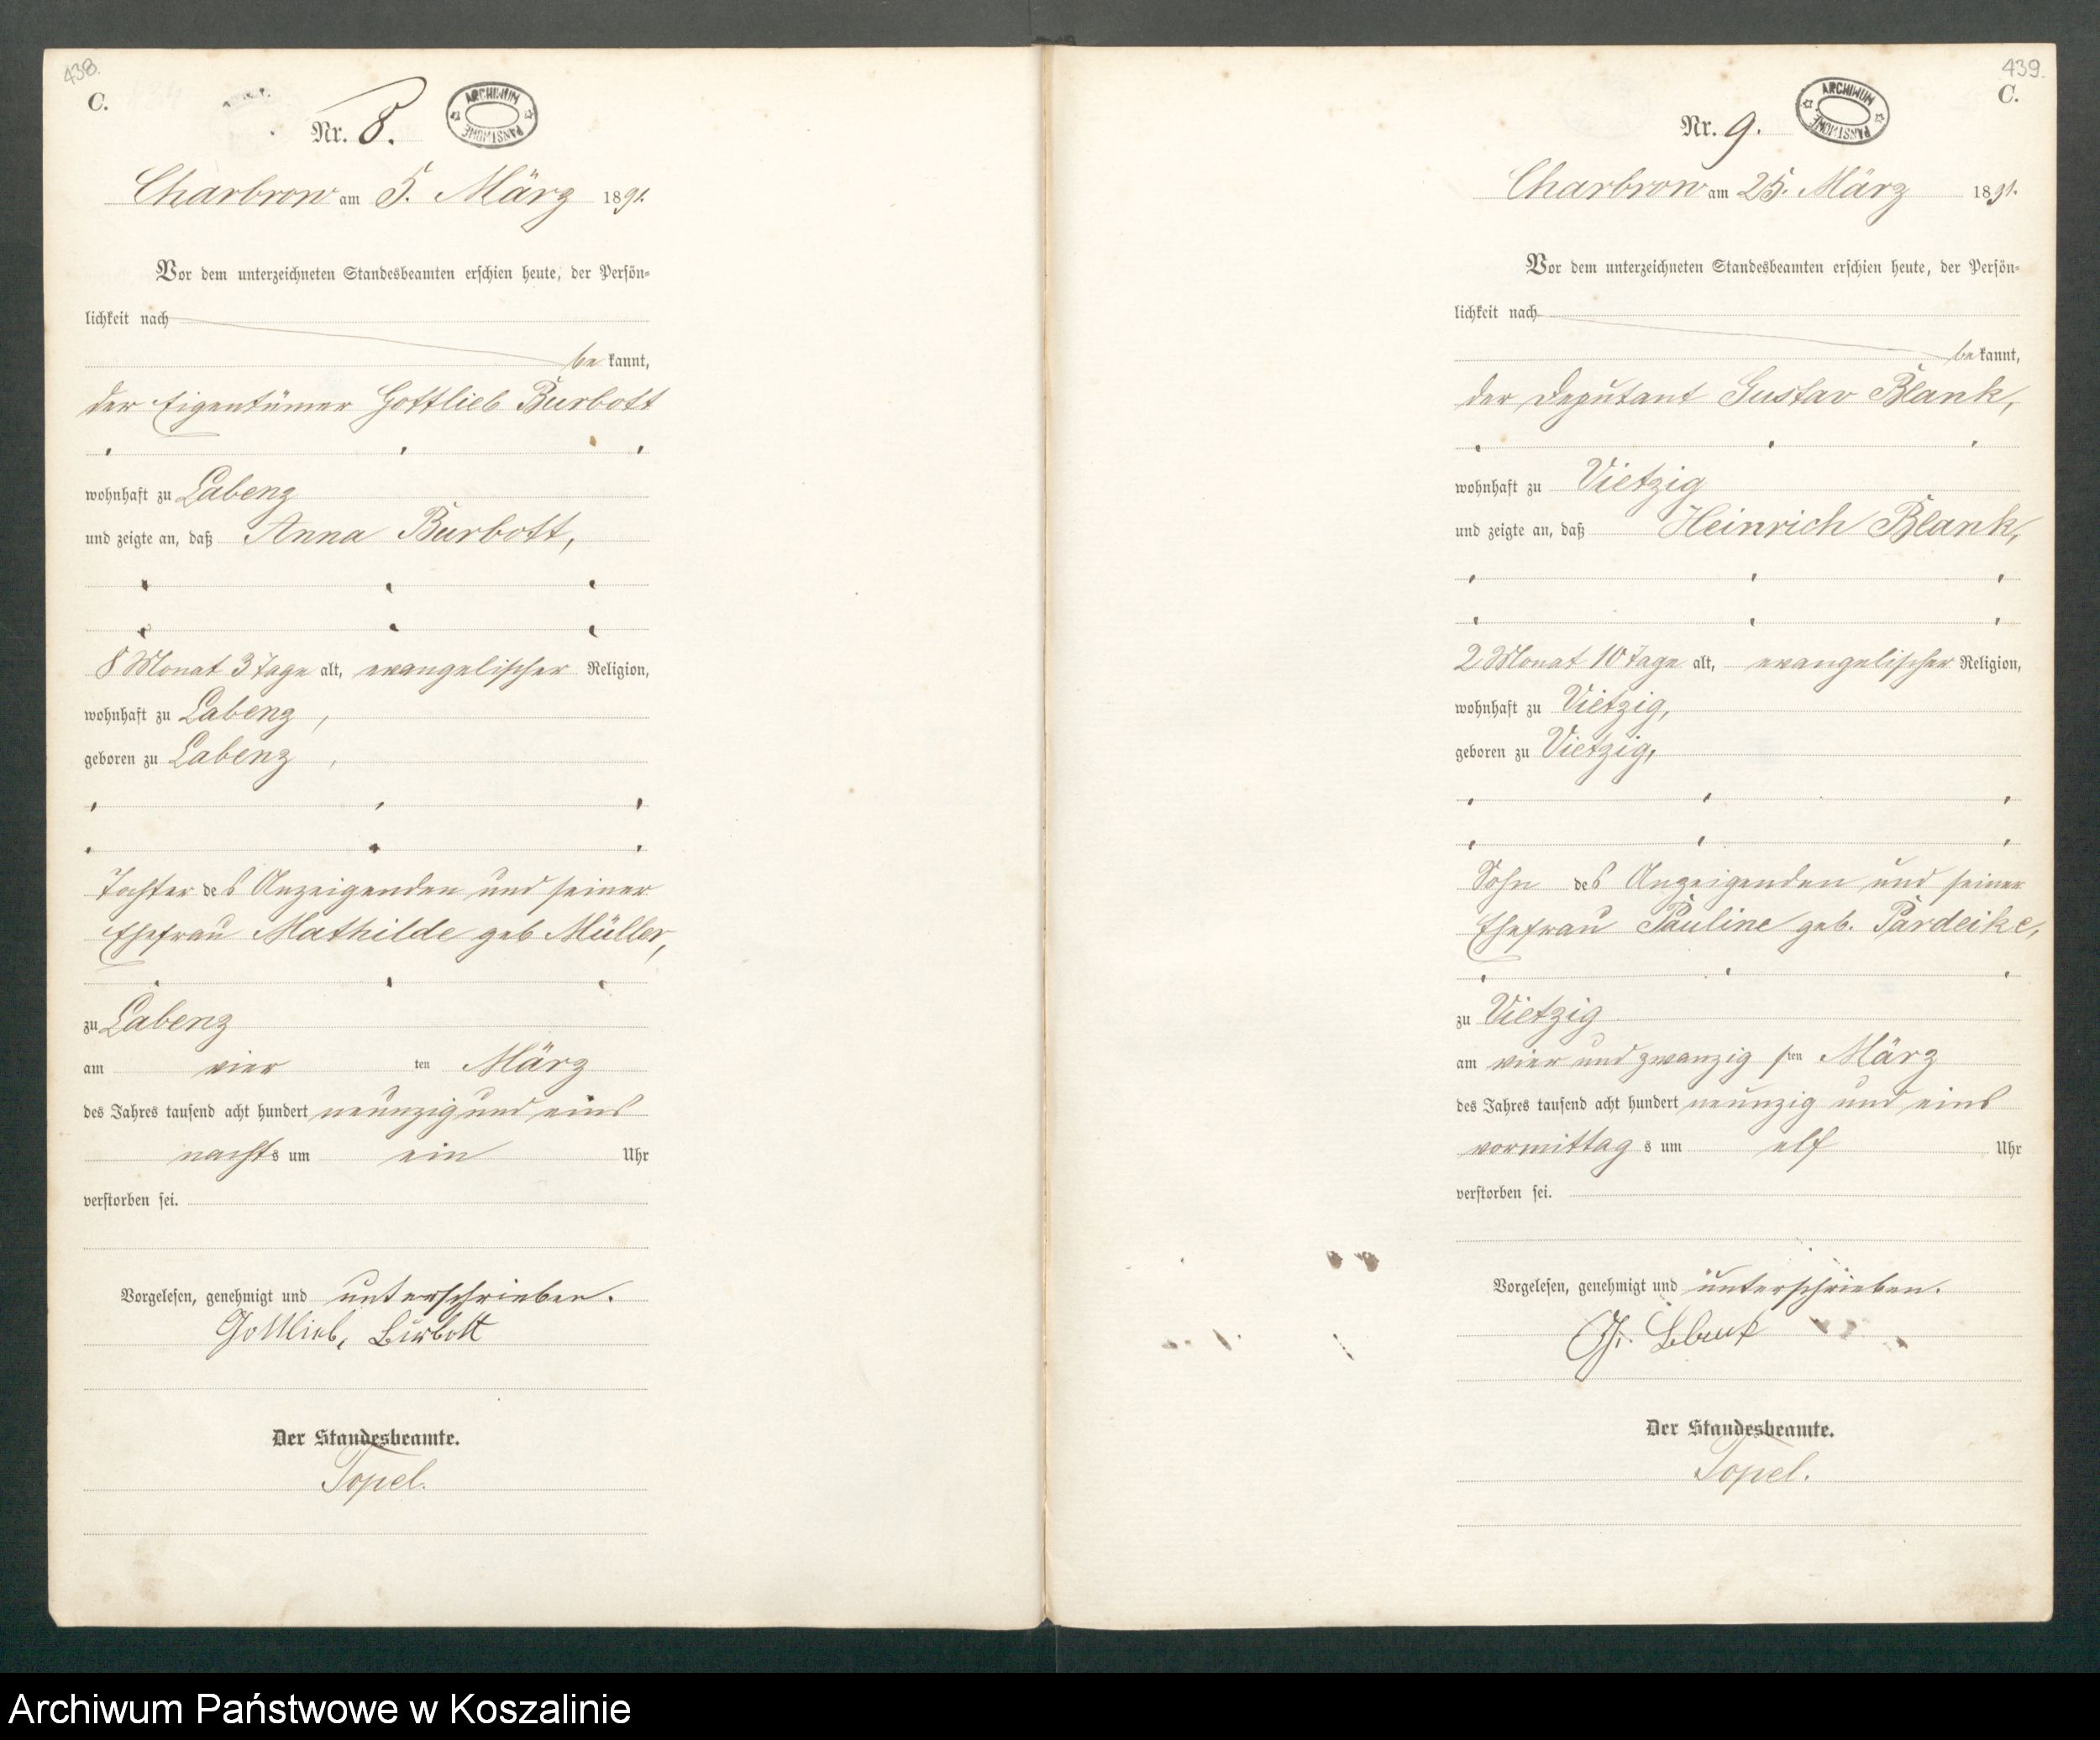 438.
C.
ARCHIWUM PAŃSTWOWE
Nr. 8.
Charbrow am 5. März 1891.
Vor dem unterzeichneten Standesbeamten erschien heute, der Persön-
lichkeit nach
be kannt,
der Eigentümer Gottlieb Burbott
wohnhaft zu Labenz
und zeigte an, daß Anna Burbott,
8 Monat 3 Tage alt, evangelischer Religion,
wohnhaft zu Labenz,
geboren zu Labenz,
Tochter des Anzeigenden und seiner
Ehefrau Mathilde geb Müller,
zu Labenz
am vier ten März
des Jahres tausend acht hundert neunzig und eins
nachts um ein Uhr
verstorben sei.
Vorgelesen, genehmigt und unterschrieben.
Gottlieb, Burbott
Der Standesbeamte.
Topel.
439.
C.
ARCHIWUM PAŃSTWOWE
Nr. 9.
Charbrow am 25. März 1891.
Vor dem unterzeichneten Standesbeamten erschien heute, der Persön-
lichkeit nach
be kannt,
der Deputant Gustav Blank,
wohnhaft zu Vietzig
und zeigte an, daß Heinrich Blank,
2 Monat 10 Tage alt, evangelischer Religion,
wohnhaft zu Vietzig,
geboren zu Vietzig,
Sohn des Anzeigenden und seiner
Ehefrau Pauline geb. Pardeike,
zu Vietzig
am vier und zwanzig sten März
des Jahres tausend acht hundert neunzig und eins
vormittag s um elf Uhr
verstorben sei.
Vorgelesen, genehmigt und unterschrieben.
G. Blank
Der Standesbeamte.
Topel.
Archiwum Państwowe w Koszalinie